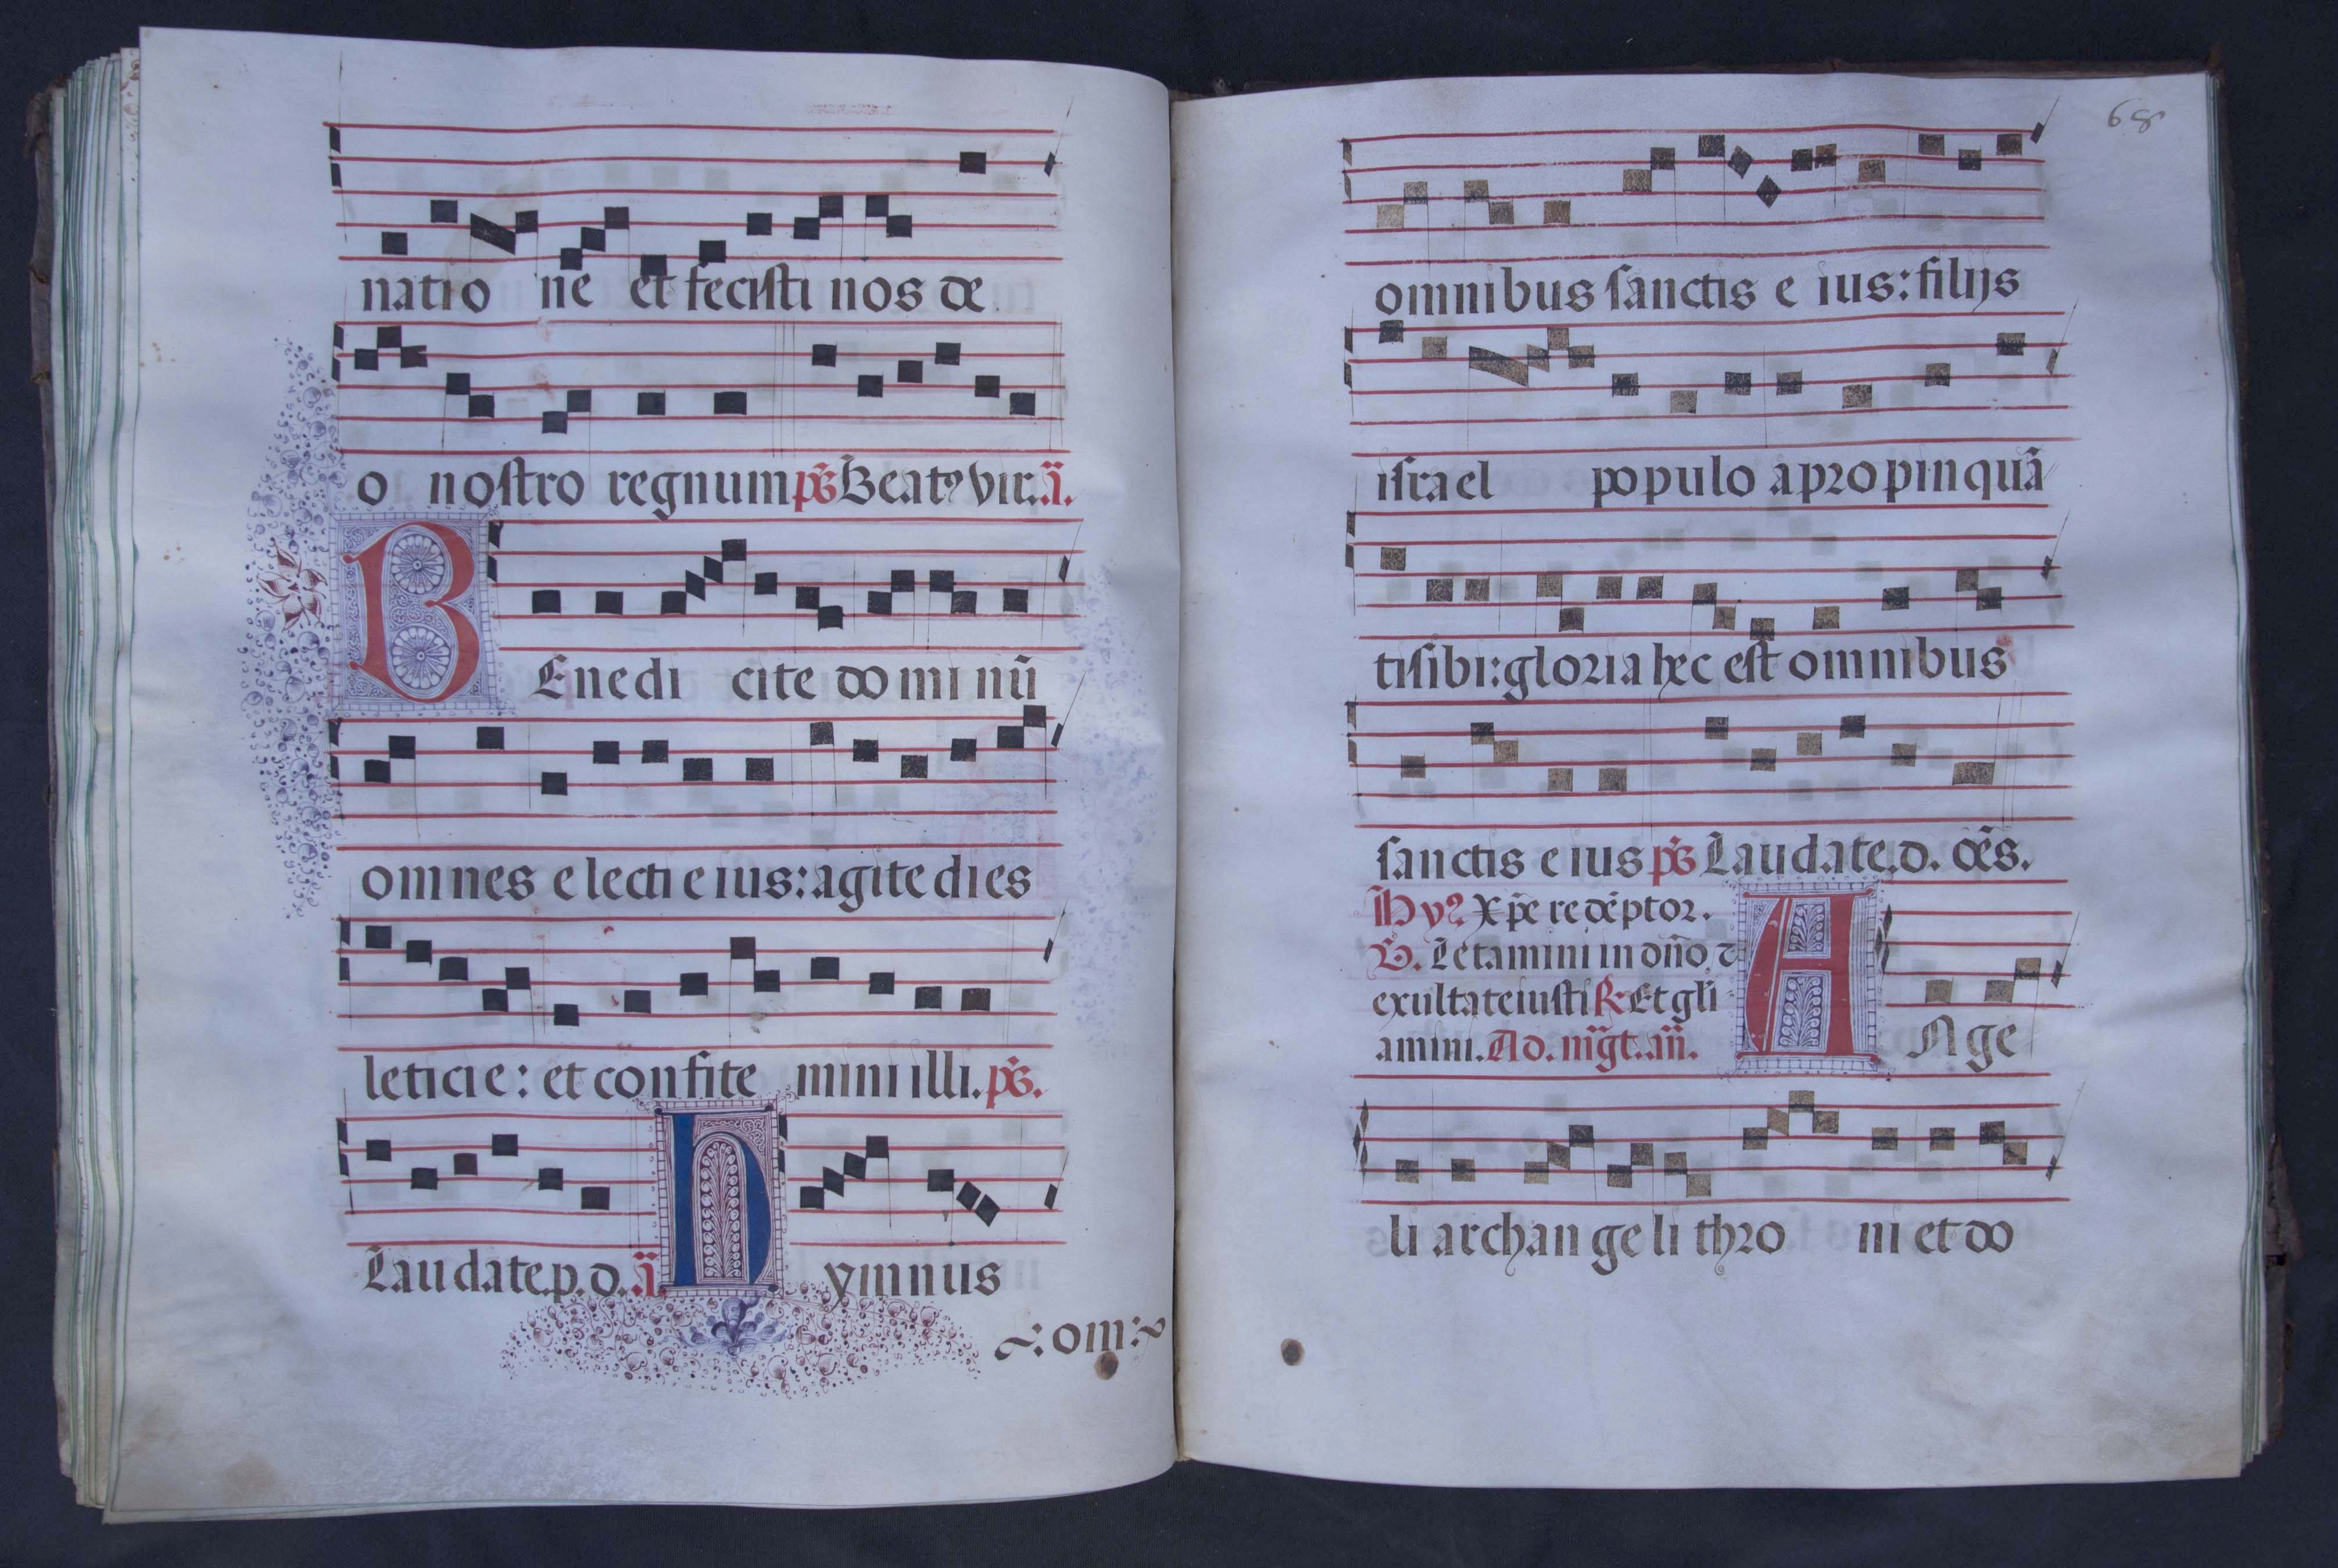 natio ne et fecisti nos de
o nostro regnum ps̄ Beatꝰ vir. ā.
BEnedi cite do mi nū
omnes e lecti e ius: agite dies
leticie: et confite mini illi. ps̄.
Laudate. p. d. ā Hymnus
~: om: ~
68
omnibus sanctis e ius: filijs
israel populo apropinquā
tisibi: gloria hec est omnibus
sanctis e ius ps̄ Laudate. d. oēs.
Hyꝰ Xp̄e redēptor.
V. Letamini in dn̄o, ⁊
exultate iusti ℟ Et gl̄i
amini. Ad. m̄gt. ān̄.
ANge
li archan ge li thro ni et do